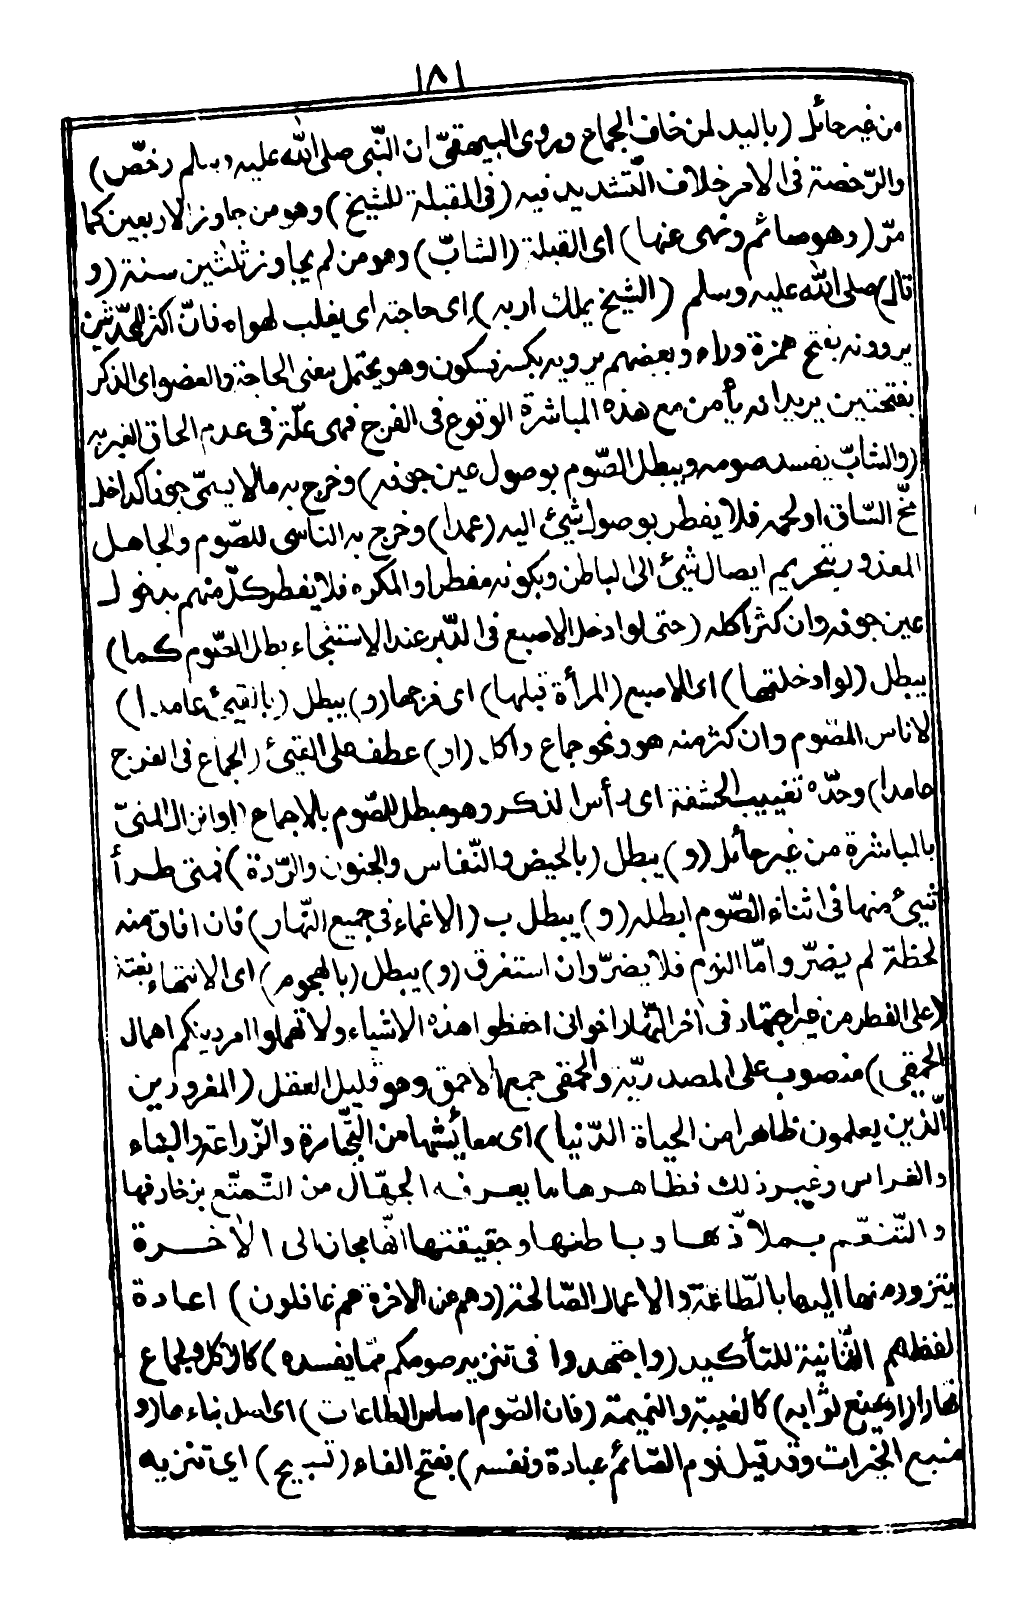 ١٨١
من غير حائل (باليد لمن خاف الجماع وروى البيهقىّ ان النّبى صلى الله عليه وسلم رخّص)
والرّخصة فى الامر خلاف التّشديد فيه (فى القبلة للشيخ) وهو من جاوز الاربعين كما
مرّ (وهو صائم ونهى عنها) اى القبلة (الشابّ) وهو من لم يجاوز ثلثين سنة (و
قال) صلى الله عليه وسلم (الشيخ يملك اربه) اى حاجته اى يغلب لهواه فانّ اكثر المحدّثين
يروونه بفتح همزة وراء وبعضهم يرويه بكسر فسكون وهو يحتمل معنى الحاجة والعضو اى الذكر
بفتحتين يريد انه يأمن مع هذه المباشرة الوقوع فى الفرج فهى علّة فى عدم الحاق الغير به
(والشابّ يفسد صومه ويبطل الصّوم بوصول عين جوفه) وخرج به ما لا يسمّى جوفا كداخل
مخّ السّاق او لحمه فلا يفطر بوصول شئ اليه (عمدا) وخرج به الناسى للصّوم والجاهل
المعذور بتحريم ايصال شئ الى الباطن وبكونه مفطرا والمكره فلا يفطر كلّ منهم بدخول
عين جوفه وان كثر اكله (حتى لو ادخل الاصبع فى الدّبر عند الاستنجاء بطل الصّوم كما)
يبطل (لو ادخلتها) اى الاصبع (المرأة قبلها) اى فرجها (و) يبطل (بالقيئ عامدا)
لا ناس الصّوم وان كثر منه هو ونحو جماع واكل (او) عطف على القيئ (الجماع فى الفرج
عامدا) وحدّه تغييب الحشفة اى رأس الذكر وهو مبطل للصّوم بالاجماع (او انزال المنىّ
بالمباشرة من غير حائل (و) يبطل (بالحيض والنّفاس والجنون والرّدة) فمتى طرأ
شئ منها فى اثناء الصّوم ابطله (و) يبطل ب (الاغماء فى جميع النّهار) فان افاق منه
لحظة لم يضرّ وامّا النوم فلا يضرّ وان استغرق (و) يبطل (بالهجوم) اى الانتهاء بغتة
(على الفطر من غير اجتهاد فى اٰخر النّهار اخوانى احفظوا هذه الاشياء ولا تهملوا امر دينكم اهمال
الحمقى) منصوب على المصدريّة والحمقى جمع الاحمق وهو قليل العقل (المغرورين
الّذين يعلمون ظاهرا من الحياة الدّنيا) اى معائشها من التّجارة والزّراعة والبناء
والغراس وغير ذلك فظاهرها ما يعرفه الجهّال من التّمتّع بزخارفها
والتّنعّم بملاذّها وباطنها وحقيقتها انّها مجاز الى الاٰخرة
يتزود منها اليها بالطّاعة والاعمال الصّالحة (وهم عن الاخرة هم غافلون) اعادة
لفظ هم الثّانية للتأكيد (واجتهدوا فى تنزيه صومكم ممّا يفسده) كالاكل والجماع
نهارا (او يمنع ثوابه) كالغيبة والنميمة (فان الصّوم اساس الطاعات) اى اصل بناءها (و
منبع الخيرات وقد قيل نوم الصّائم عبادة ونفسه) بفتح الفاء (تسبيح) اى تنزيه